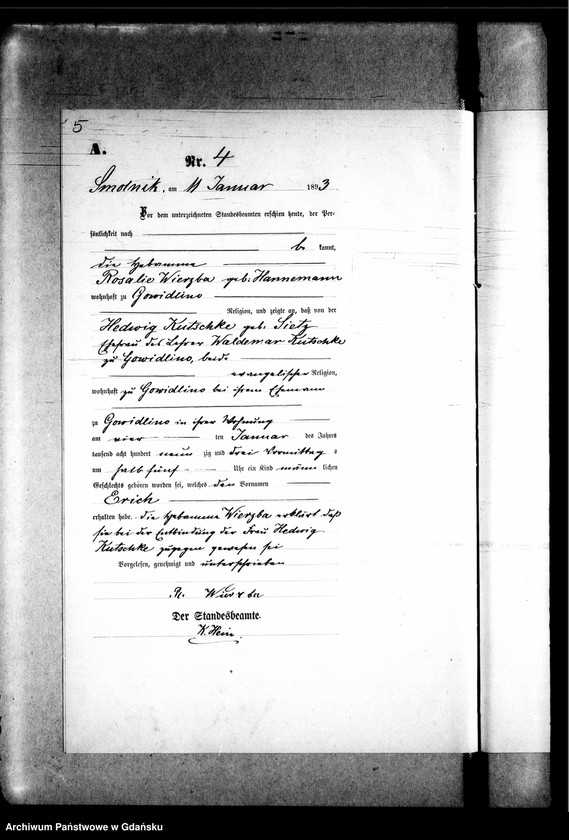 5
A.
Nr. 4
Smolnik, am 11 Januar 1893
Vor dem unterzeichneten Standesbeamten erschien heute, der Per-
sönlichkeit nach
be kannt,
die Hebamme
Rosalie Wierzba geb: Hannemann
wohnhaft zu Gowidlino
Religion, und zeigte an, daß von der
Hedwig Kutschke geb: Sietz
Ehefrau des Lehrer Waldemar Kutschke
zu Gowidlino, beide
evangelischer Religion,
wohnhaft zu Gowidlino bei ihrem Ehemann
zu Gowidlino in ihrer Wohnung
am vier ten Januar des Jahres
tausend acht hundert neun zig und drei Vormittag s
um halb fünf Uhr ein Kind männ lichen
Geschlechts geboren worden sei, welches den Vornamen
Erich
erhalten habe. Die Hebamme Wierzba erklärt daß
sie bei der Entbindung der Frau Hedwig
Kutschke zugegen gewesen sei
Vorgelesen, genehmigt und unterschrieben
R.
Der Standesbeamte.
K. Hein
Archiwum Państwowe w Gdańsku